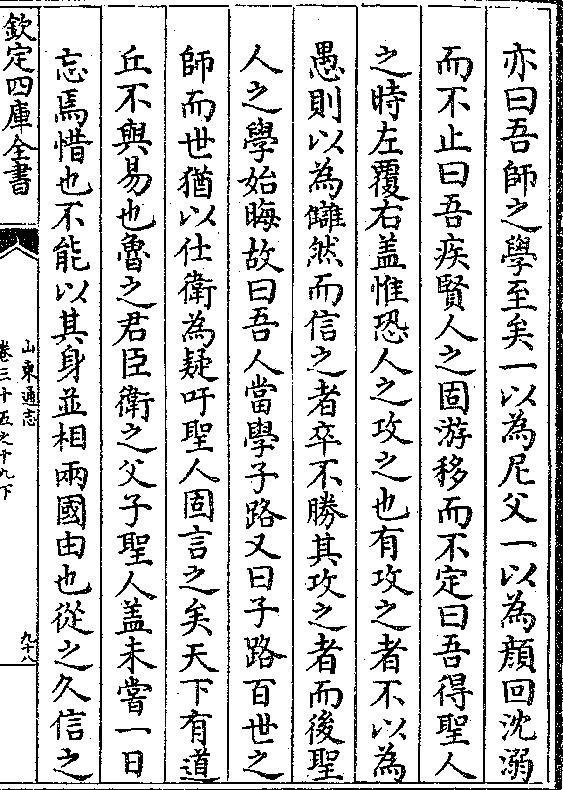 亦曰吾師之學至矣一以為尼父一以為顏回沈溺
而不止曰吾疾賢人之固游移而不定曰吾得聖人
之時左覆右盖惟恐人之攻之也有攻之者不以為
愚則以為讎然而信之者卒不勝其攻之者而後聖
人之學始晦故曰吾人當學子路又曰子路百世之
師而世猶以仕衛為疑吁聖人固言之矣天下有道
丘不與易也魯之君臣衛之父子聖人盖未嘗一日
忘焉惜也不能以其身並相兩國由也從之久信之
欽定四庫全書
山東通志
卷三十五之十九下
九十八